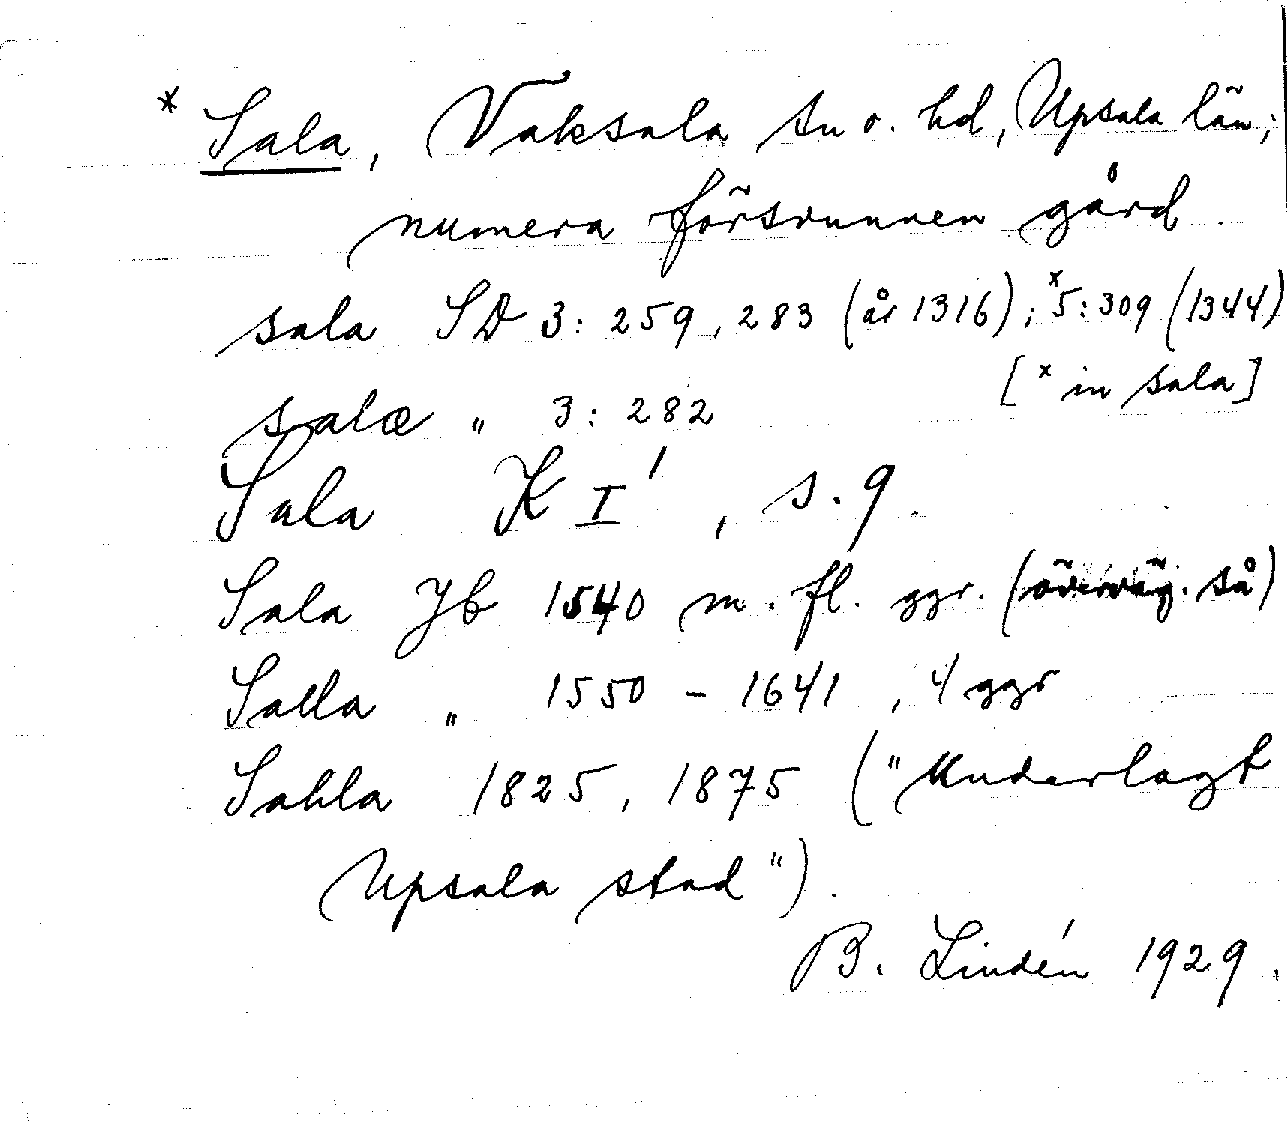 * Sala, Vaksala sn o. hd, Upsala län;
numera försvunnen gård.
sala SD 3: 259, 283 (år 1316); ˣ5: 309 (1344)
[ˣ in sala]
salæ „ 3: 282
Sala K I', s. 9.
Sala Jb 1540 m. fl. ggr. (överväg. så)
Salla „ 1550 – 1641, 4 ggr
Sahla 1825, 1875 ("Underlagt
Upsala stad").
B. Lindén 1929.